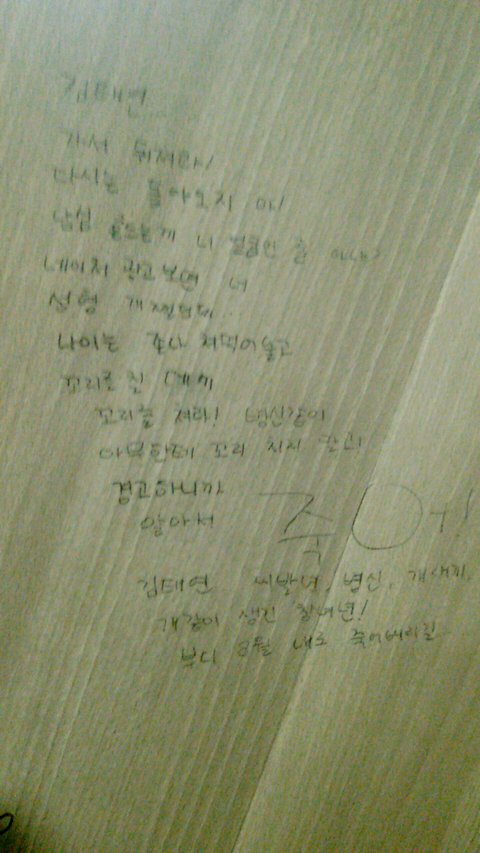 김태연
가서 뒤져라!
다시는 돌아오지 마!
남심 흔드는게 너
네이처 광고보면 너
성형
나이는 존나 처먹어놓고
꼬리를 칠
꼬리를 쳐라! 병신같이
아무한테 꼬리 치지 말고!
경고하니까
알아서 죽어!
김태연 씨발년, 병신, 개새끼,
개같이 생긴 창녀년!
부디 8월 내로 죽어버리길